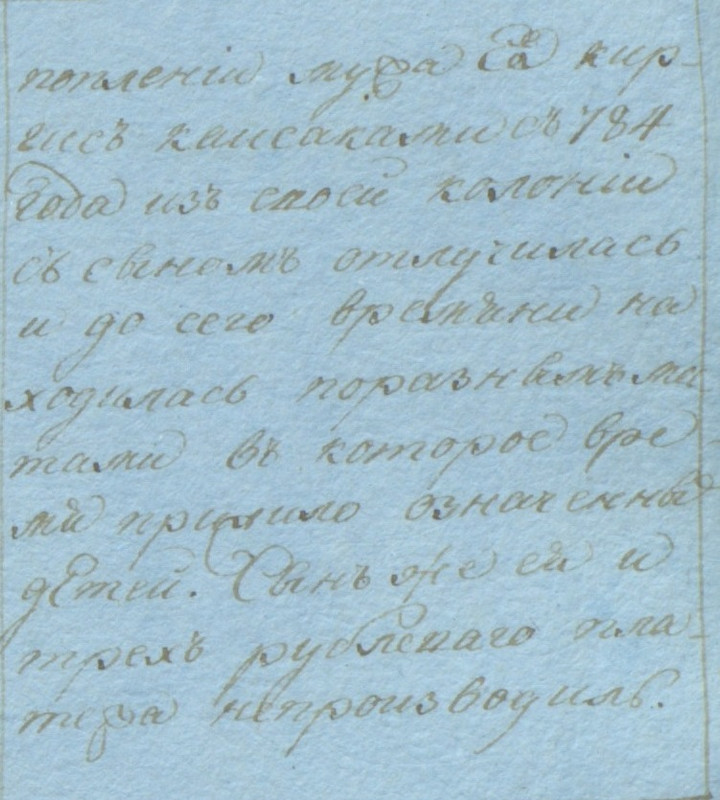 поплении мужа Ея кир-
гисъ каисаками съ 784
года изъ своей колоніи
съ сыномъ отлучилась
и до сего времѣни на
ходилась поразнымъ ме
тами въ которое вре
мя прижило означенны
дѣтей. Сынъ же ея и
трехъ рублеваго пла-
тежа непроизводилъ.